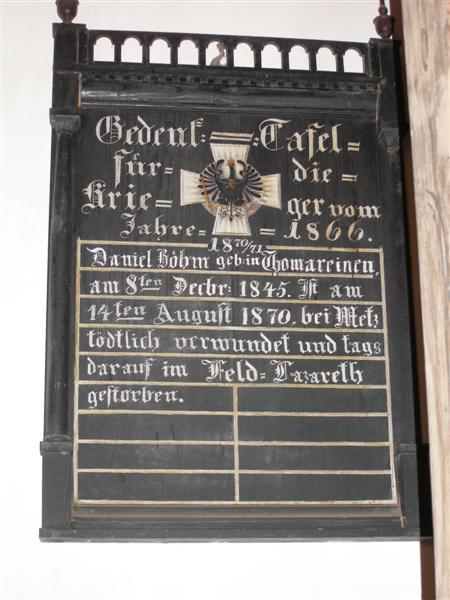 Gedenk= Tafel=
für= die=
Krie= ger vom
Jahre= =1866.
1870/71
Daniel Böhm geb: in Thomareinen,
am 8ten Decbr: 1845. Ist am
14ten August 1870. bei Metz
tödtlich verwundet und tags
darauf im Feld=Lazareth
gestorben.